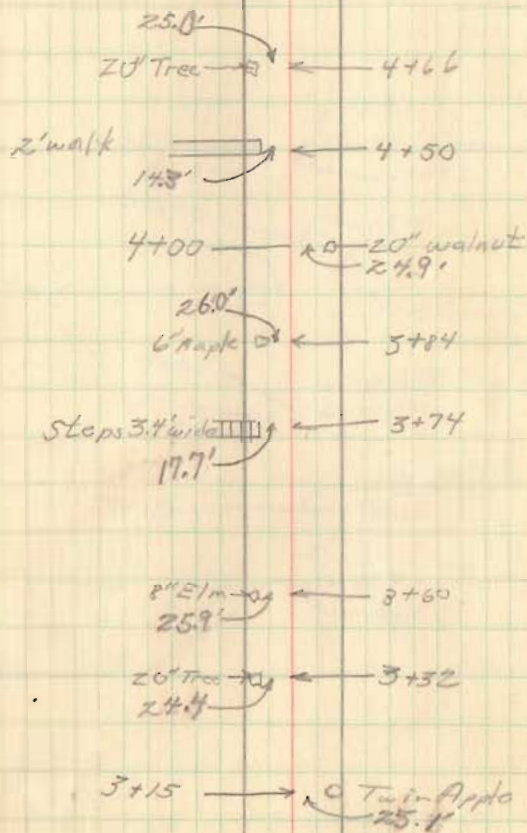 25.0'
20" Tree 4+66
2' walk 4+50
14.3'
4+00 20" walnut
24.9'
26.0'
6" Maple 3+84
Steps 3.4' wide 3+74
17.7'
8" Elm 3+60
25.9'
20" Tree 3+32
24.4
3+15 Twin Apple
25.1'